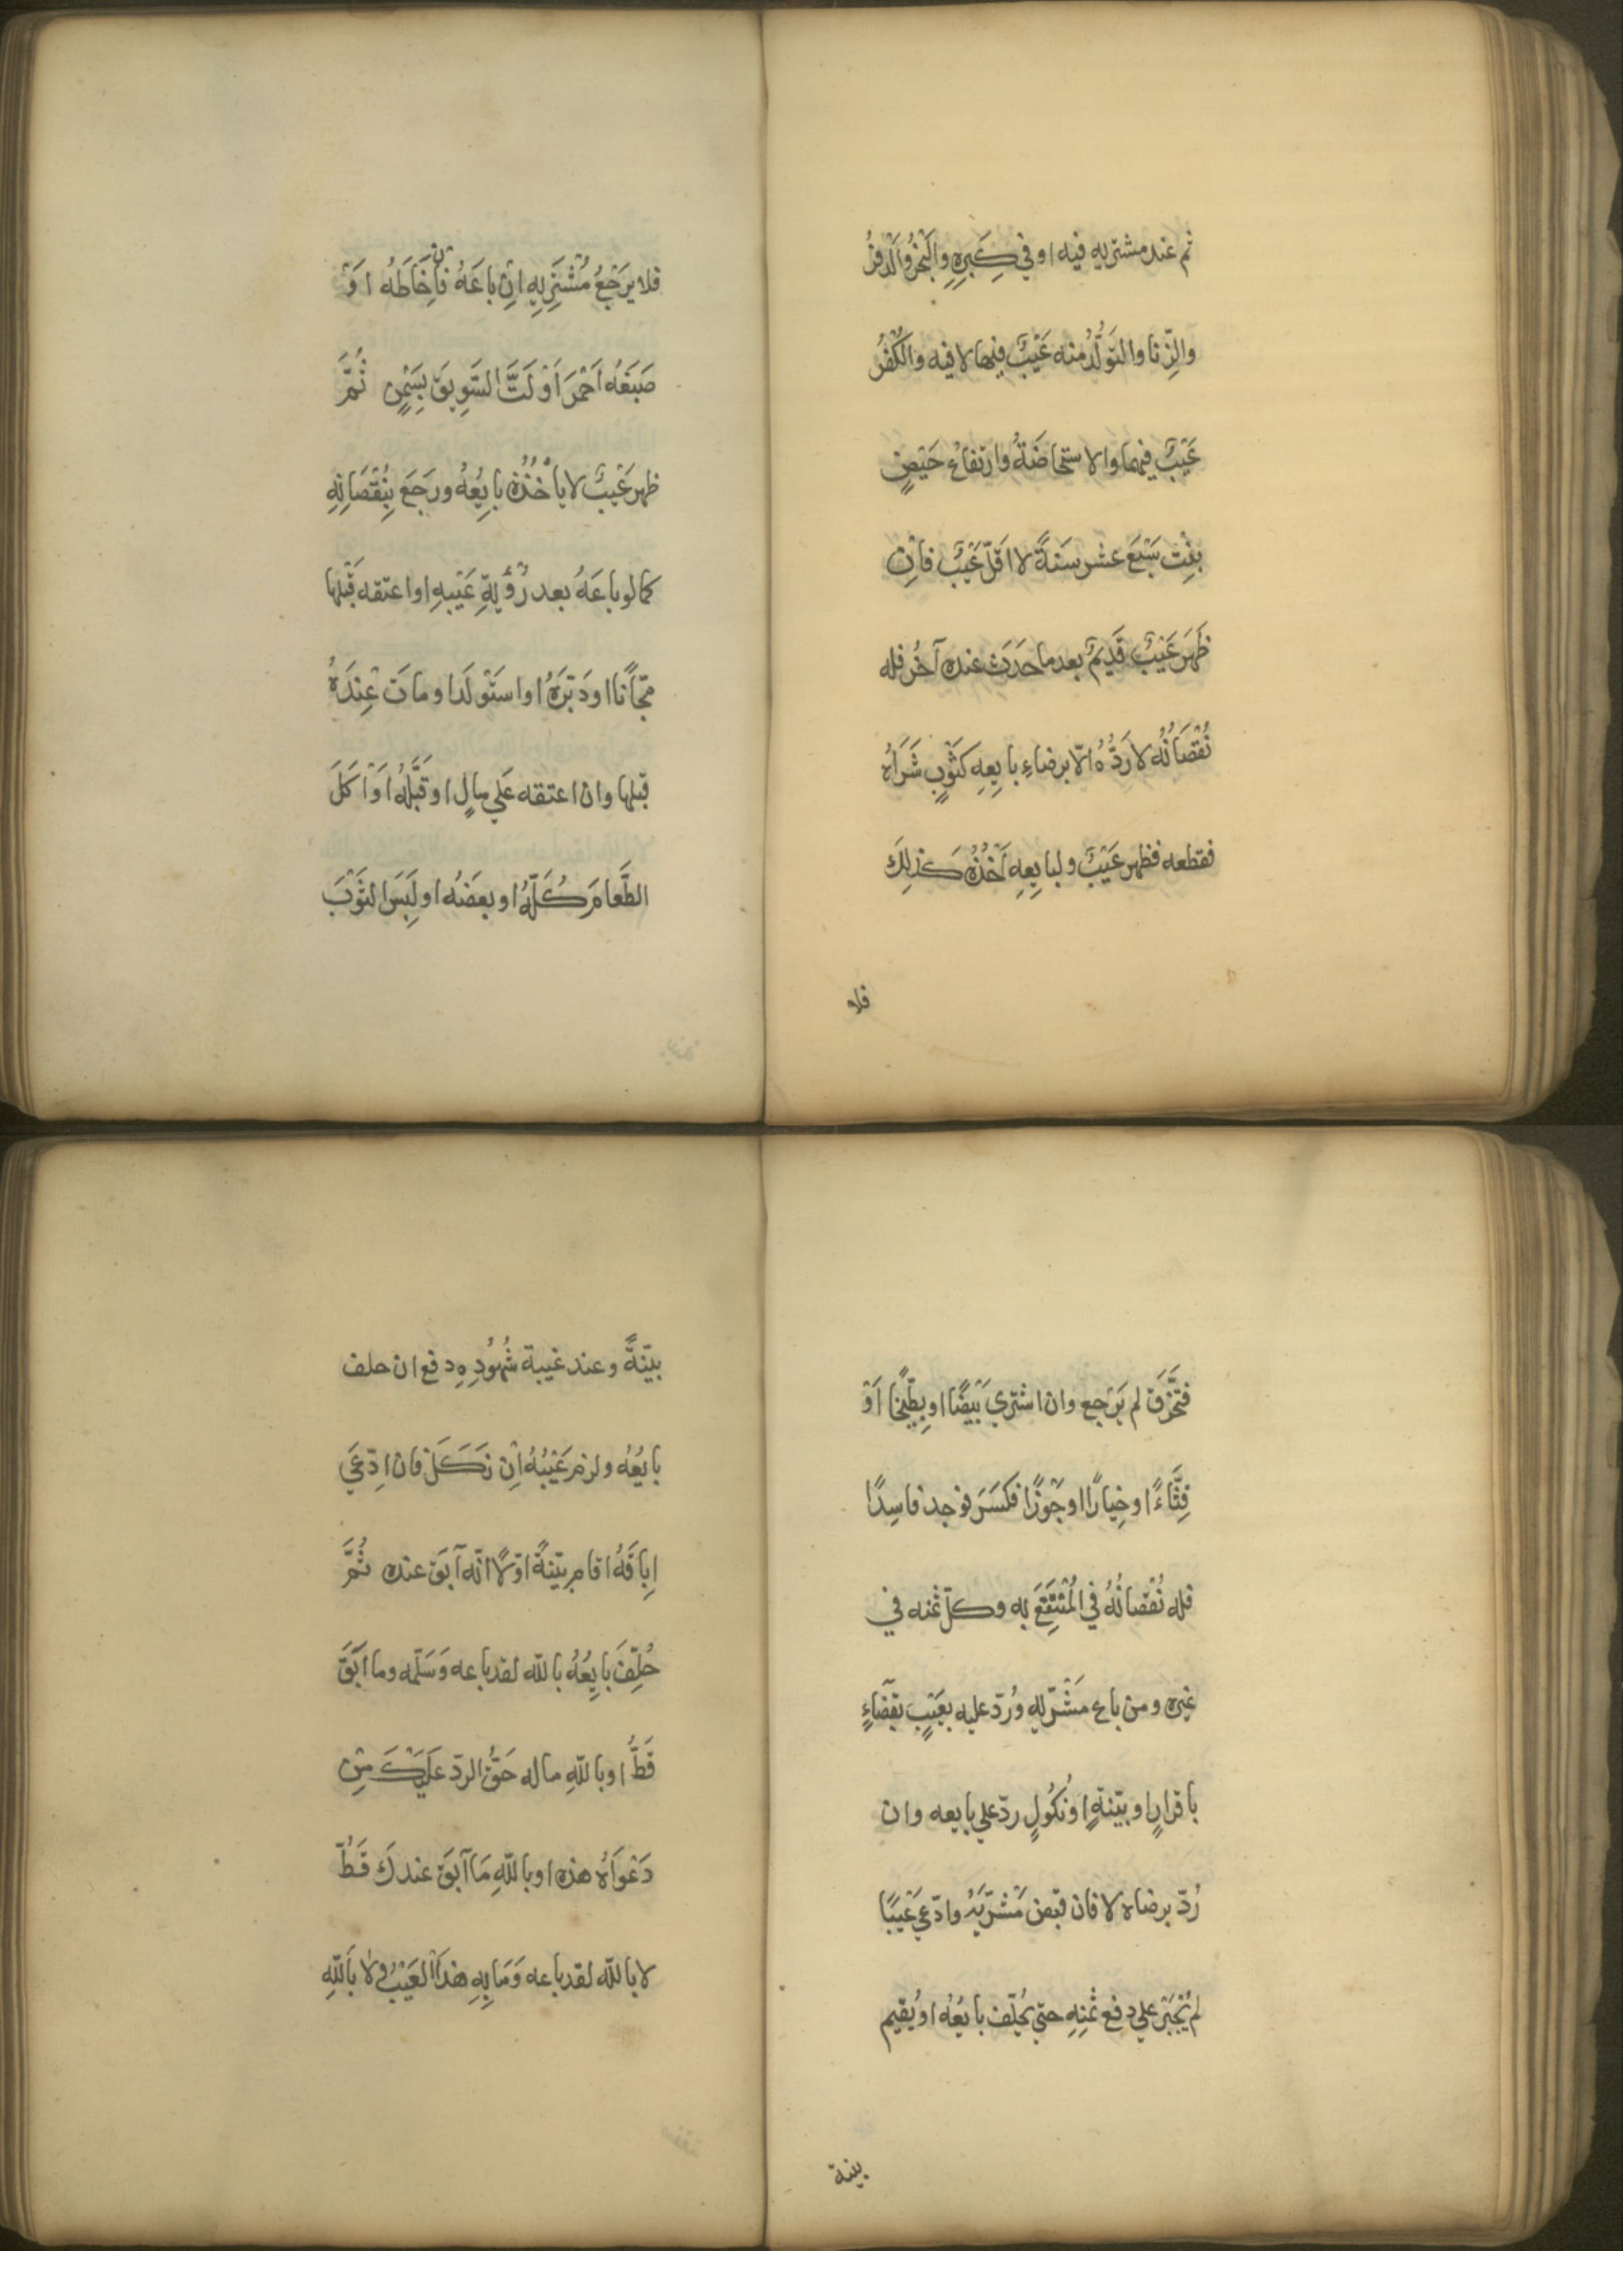 ثم عند مشتريه فيه او في كِبَرِهِ والبَخَرُ والذَفَرُ
والزِّنا والتَوَلُّدُ منه عَيْبٌ فيها لا فيه والكُفْرُ
عَيْبٌ فيهما والاستحاضَةُ وارتفاعُ حَيْضِ
بِنْتِ سَبْعَ عشر سَنةً لا اقلّ عَيْبٌ فاِنْ
ظَهَرَ عَيْبٌ قَدِيمٌ بعد ما حَدَثَ عنده آخَرُ فله
نُقْصَانُه لا رَدُّهُ الّا برضاءِ بايِعِهِ كَثَوْبٍ شَرَاهُ
فقطعه فظهر عَيْبٌ ولبايِعِهِ اَخْذُهُ كذلِكَ
فلا
فلا يَرْجِعُ مُشْتَرِيهِ اِنْ باعَهُ فاِنْ خَاطَهُ اَوْ
صَبَغَهُ اَحْمَرَ اَوْ لَتَّ السَّوِيقَ بِسَمْنٍ ثُمَّ
ظهر عَيْبٌ لا يأخُذُه بايِعُهُ ورَجَعَ بِنُقْصَانِهِ
كما لو باعَهُ بعد رُؤْيةِ عَيْبِهِ او اعتقه قَبْلَها
مجّانًا او دَبَّرَهُ او استَوْلَدَ او ماتَ عِنْدَهُ
قبلها وان اعتقه عَلي مالٍ او قَتَلَهُ اَوْ اَكَلَ
الطَّعامَ كُلَّهُ او بعضَهُ او لَبِسَ الثَوْبَ
فتَخَرَّقَ لم يَرْجع وان اشتري بَيْضًا او بِطِّيخًا اَوْ
قِثَّاءً او خِيارًا او جَوْزًا فكَسَرَ فوَجد فاسِدًا
فله نُقْصانُهُ في المُنْتَفَعَ به وكلّ ثمنه في
غيره ومن باع مَشْرِيّه ورُدّ عليه بعَيْبٍ بقَضَاءٍ
باقرارٍ او بيّنةٍ او نُكُولٍ ردّ علي بايعه وان
رُدّ برضاه لا فان قبض مَشْرِيَّهُ وادّعي عَيْبًا
لم يُجْبَرْ علي دفع ثمنِهِ حتّي يُحلّف بايُعُهُ او يُقيم
بينة
بيّنةً وعند غيبة شُهُودِهِ دفع ان حلف
بايُعُه ولزم عَيْبُهُ اِنْ نَكَلَ فان ادّعَي
اِباقَهُ اقام بيّنةً اوّلًا انّه اَبَقَ عنده ثُمَّ
حُلِّفَ بايِعُهُ باللّه لقد باعه وَسَلّمه وما اَبَقَ
قَطُّ او باللّهِ ما له حَقُّ الردّ عَلَيْكَ مِنْ
دَعْوَاهُ هذه او باللّهِ مَا اَبَقَ عندكَ قَطُّ
لا باللّه لقد باعه وَمَا بِهِ هذا العَيْبُ ولا بِاللّهِ